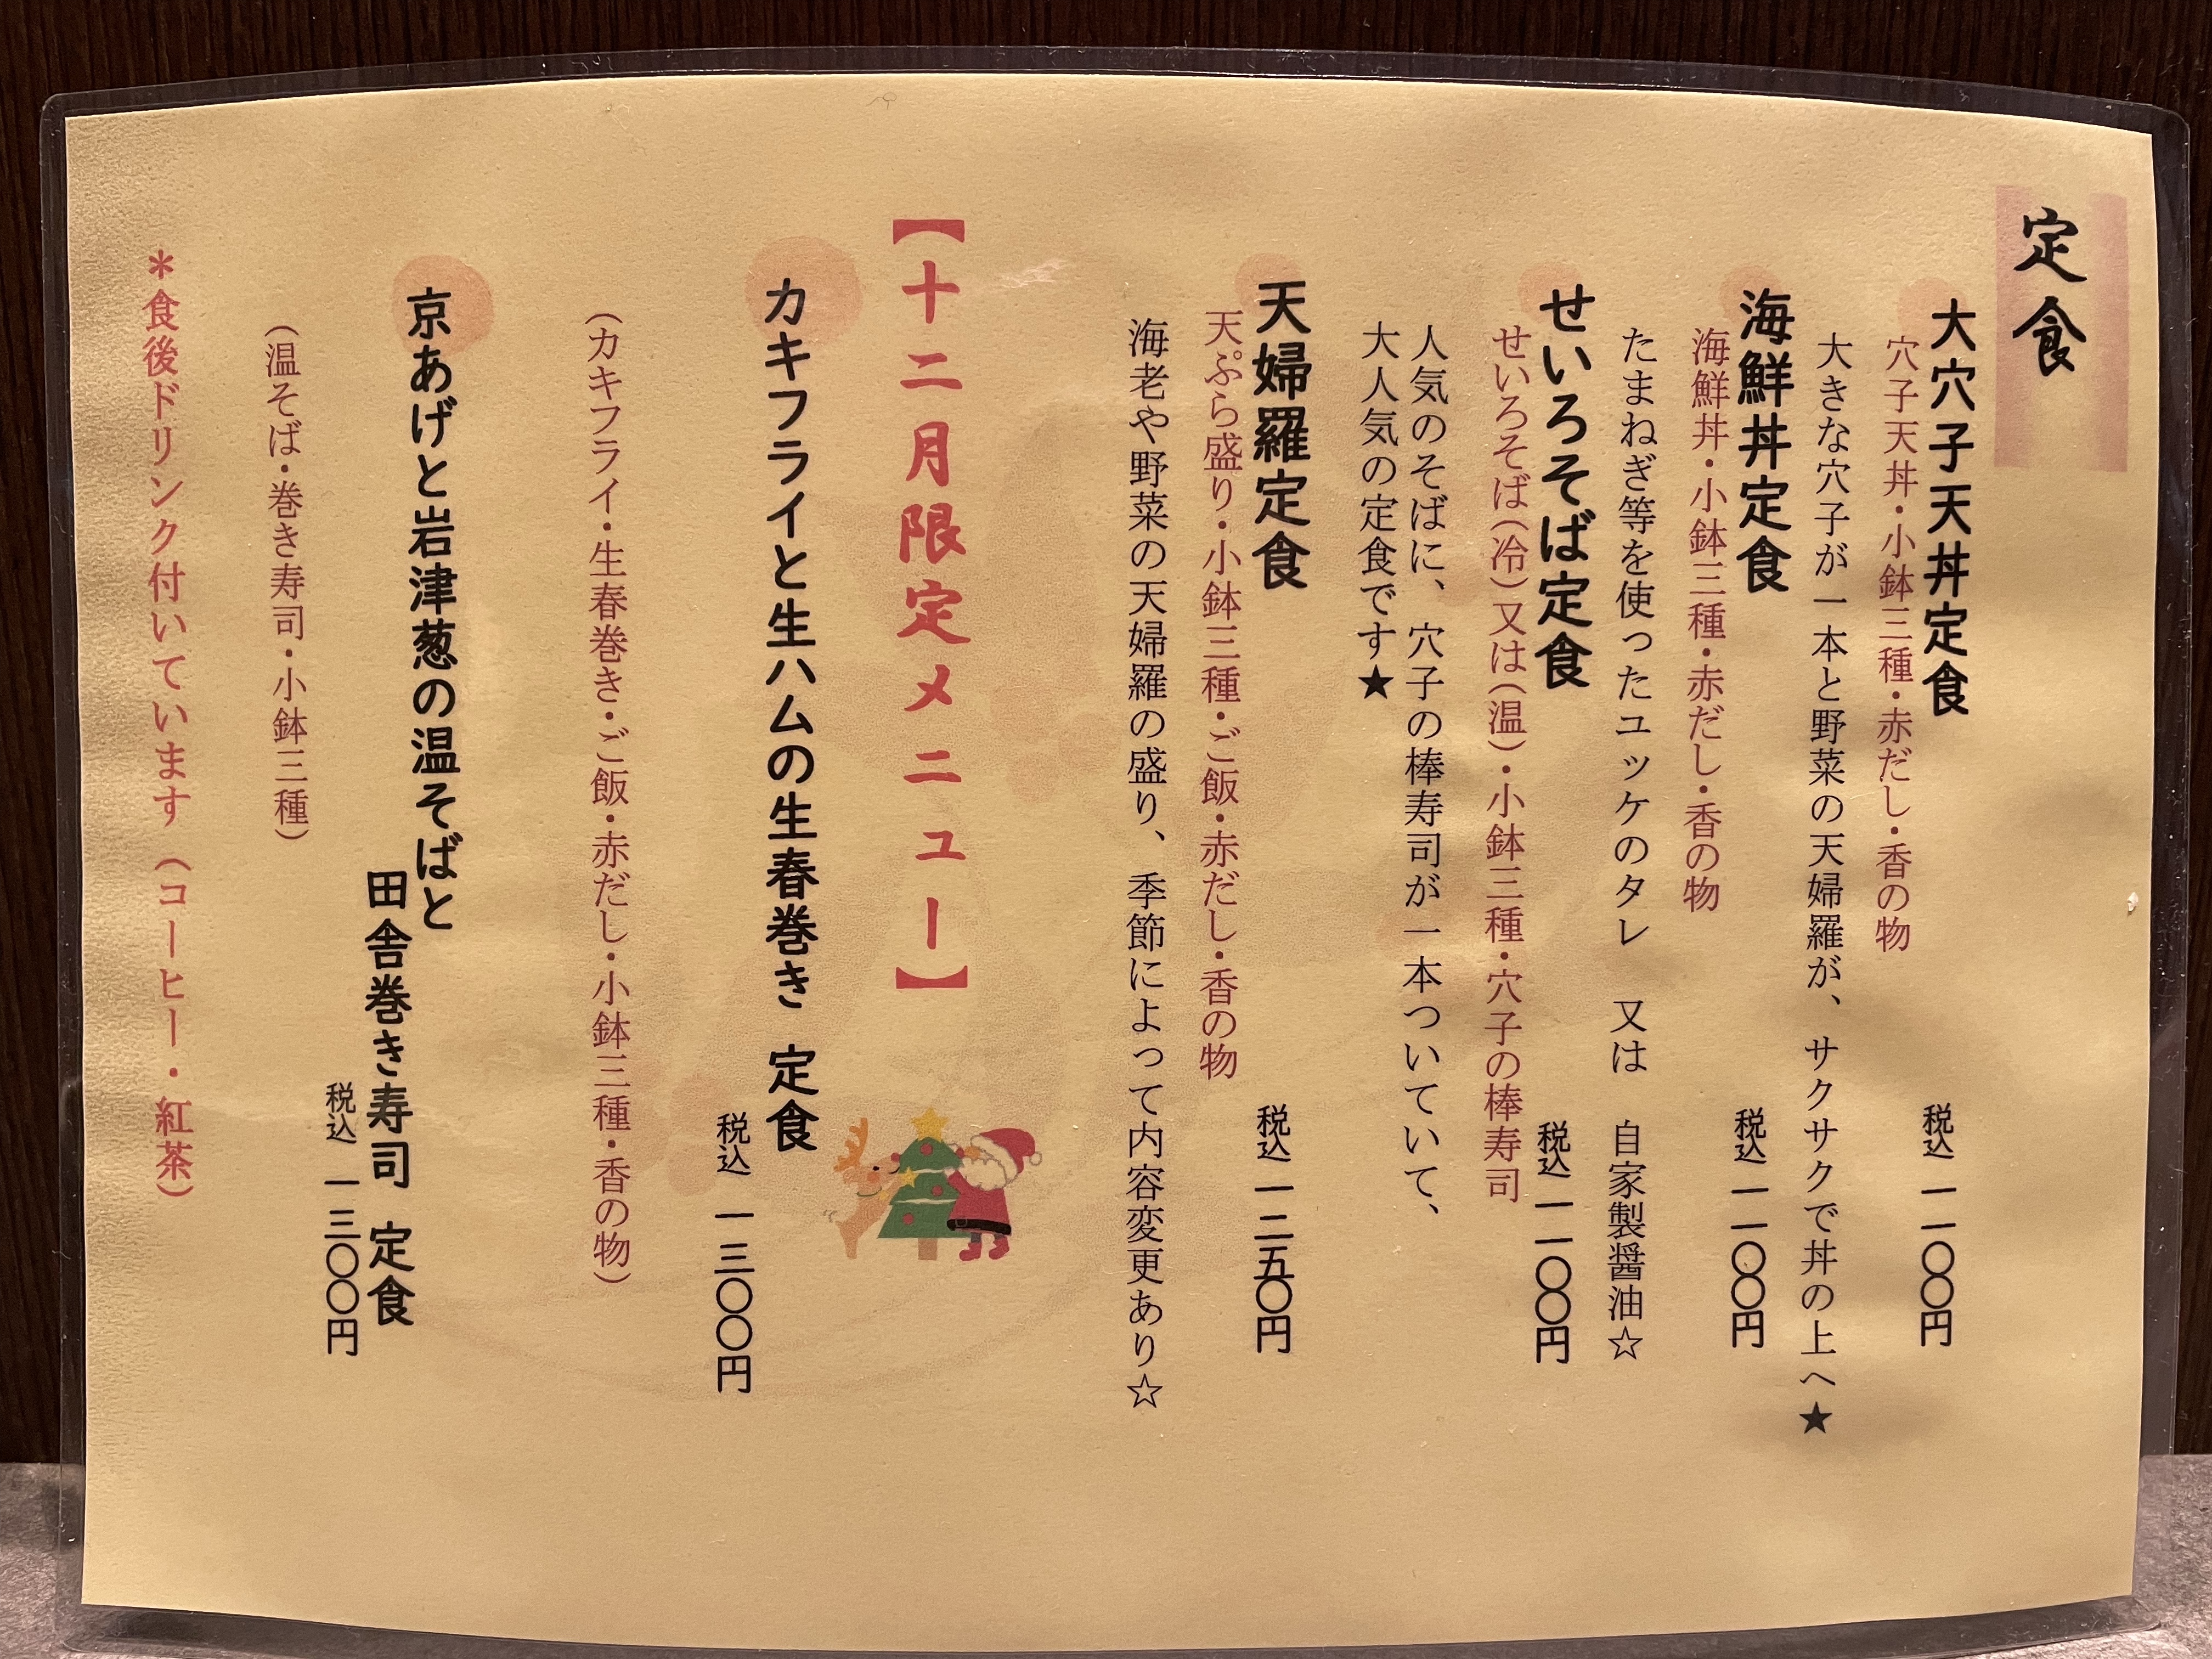 定食
大穴子天丼定食 税込 一一〇〇円
穴子天丼・小鉢三種・赤だし・香の物
大きな穴子が一本と野菜の天婦羅が、サクサクで丼の上へ★
海鮮丼定食 税込 一一〇〇円
海鮮丼・小鉢三種・赤だし・香の物
たまねぎ等を使ったユッケのタレ 又は 自家製醤油☆
せいろそば定食 税込 一一〇〇円
せいろそば(冷)又は(温)・小鉢三種・穴子の棒寿司
人気のそばに、穴子の棒寿司が一本ついていて、
大人気の定食です★
天婦羅定食 税込 一二五〇円
天ぷら盛り・小鉢三種・ご飯・赤だし・香の物
海老や野菜の天婦羅の盛り、季節によって内容変更あり☆
【十二月限定メニュー】
カキフライと生ハムの生春巻き 定食
税込 一三〇〇円
(カキフライ・生春巻き・ご飯・赤だし・小鉢三種・香の物)
京あげと岩津葱の温そばと
田舎巻き寿司 定食
税込 一三〇〇円
(温そば・巻き寿司・小鉢三種)
＊食後ドリンク付いています(コーヒー・紅茶)